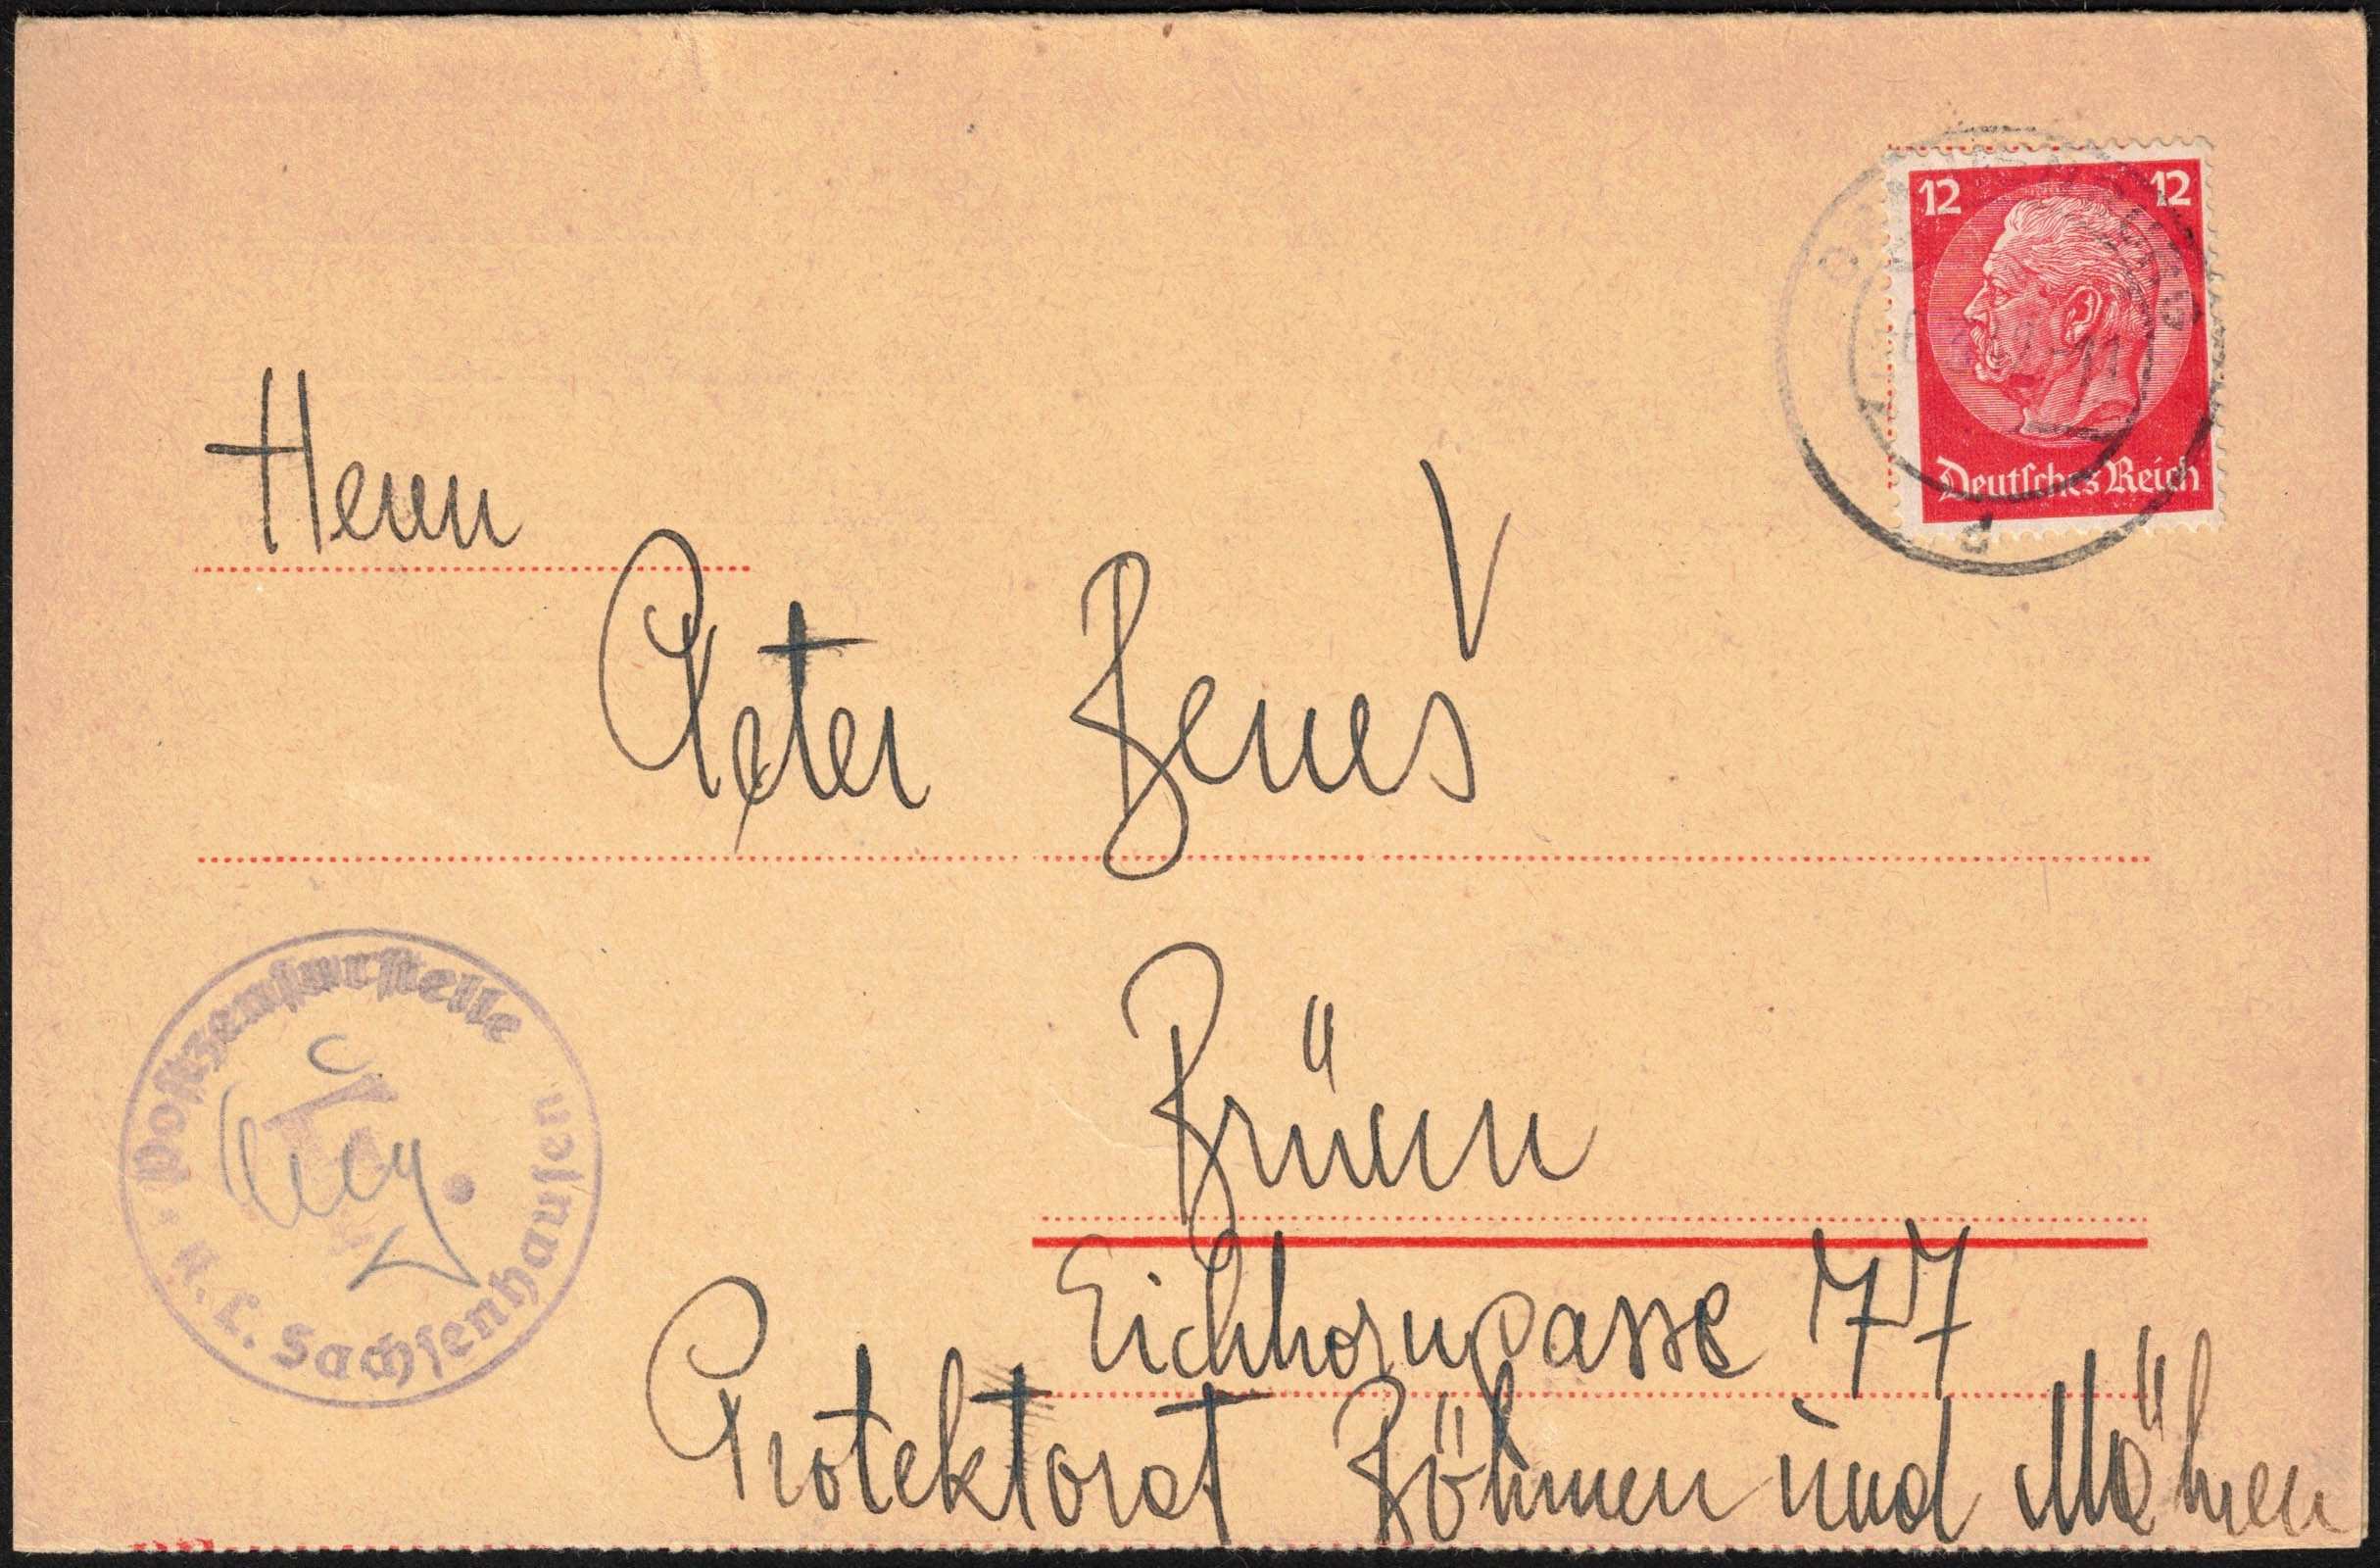 12 12
ORANIENBURG
-11
Deutsches Reich
d
Herrn
Peter Beneš
Postzensurstelle
K. L. Sachsenhausen
Brünn
Eichhorngasse 77
Protektorat Böhmen und Mähren